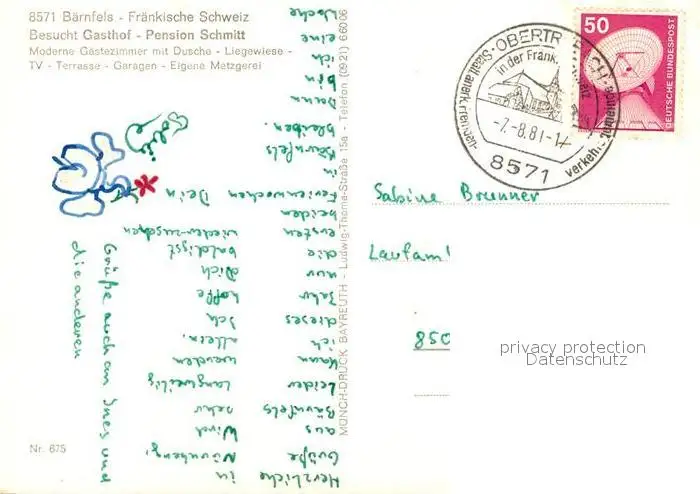 8571 Bärnfels - Fränkische Schweiz
Besucht Gasthof - Pension Schmitt
Moderne Gästezimmer mit Dusche - Liegewiese -
TV - Terrasse - Garagen - Eigene Metzgerei
Herzliche
Grüße
aus
Bärnfels
Leider
kann
ich
dieses
Jahr
nur
die
ersten
beiden
Ferienwochen
in
Bärnfels
bleiben.
Dann
bin
ich
eine
Woche
in
Nürnberg,
Wird
sehr
langweilig
werden
allein.
Ich
hoffe
Dich
baldigst
wiederzusehen
Dein
Grüße auch an Ines und
die anderen
Nr. 675
MÜNCH-DRUCK BAYREUTH - Ludwig-Thoma-Straße 15a - Telefon (0921) 66006
OBERTR
in der Fränk.
-7.-8.81-17
8571
50
DEUTSCHE BUNDESPOST
Sabine Brunner
Laufam
850
privacy protection
Datenschutz